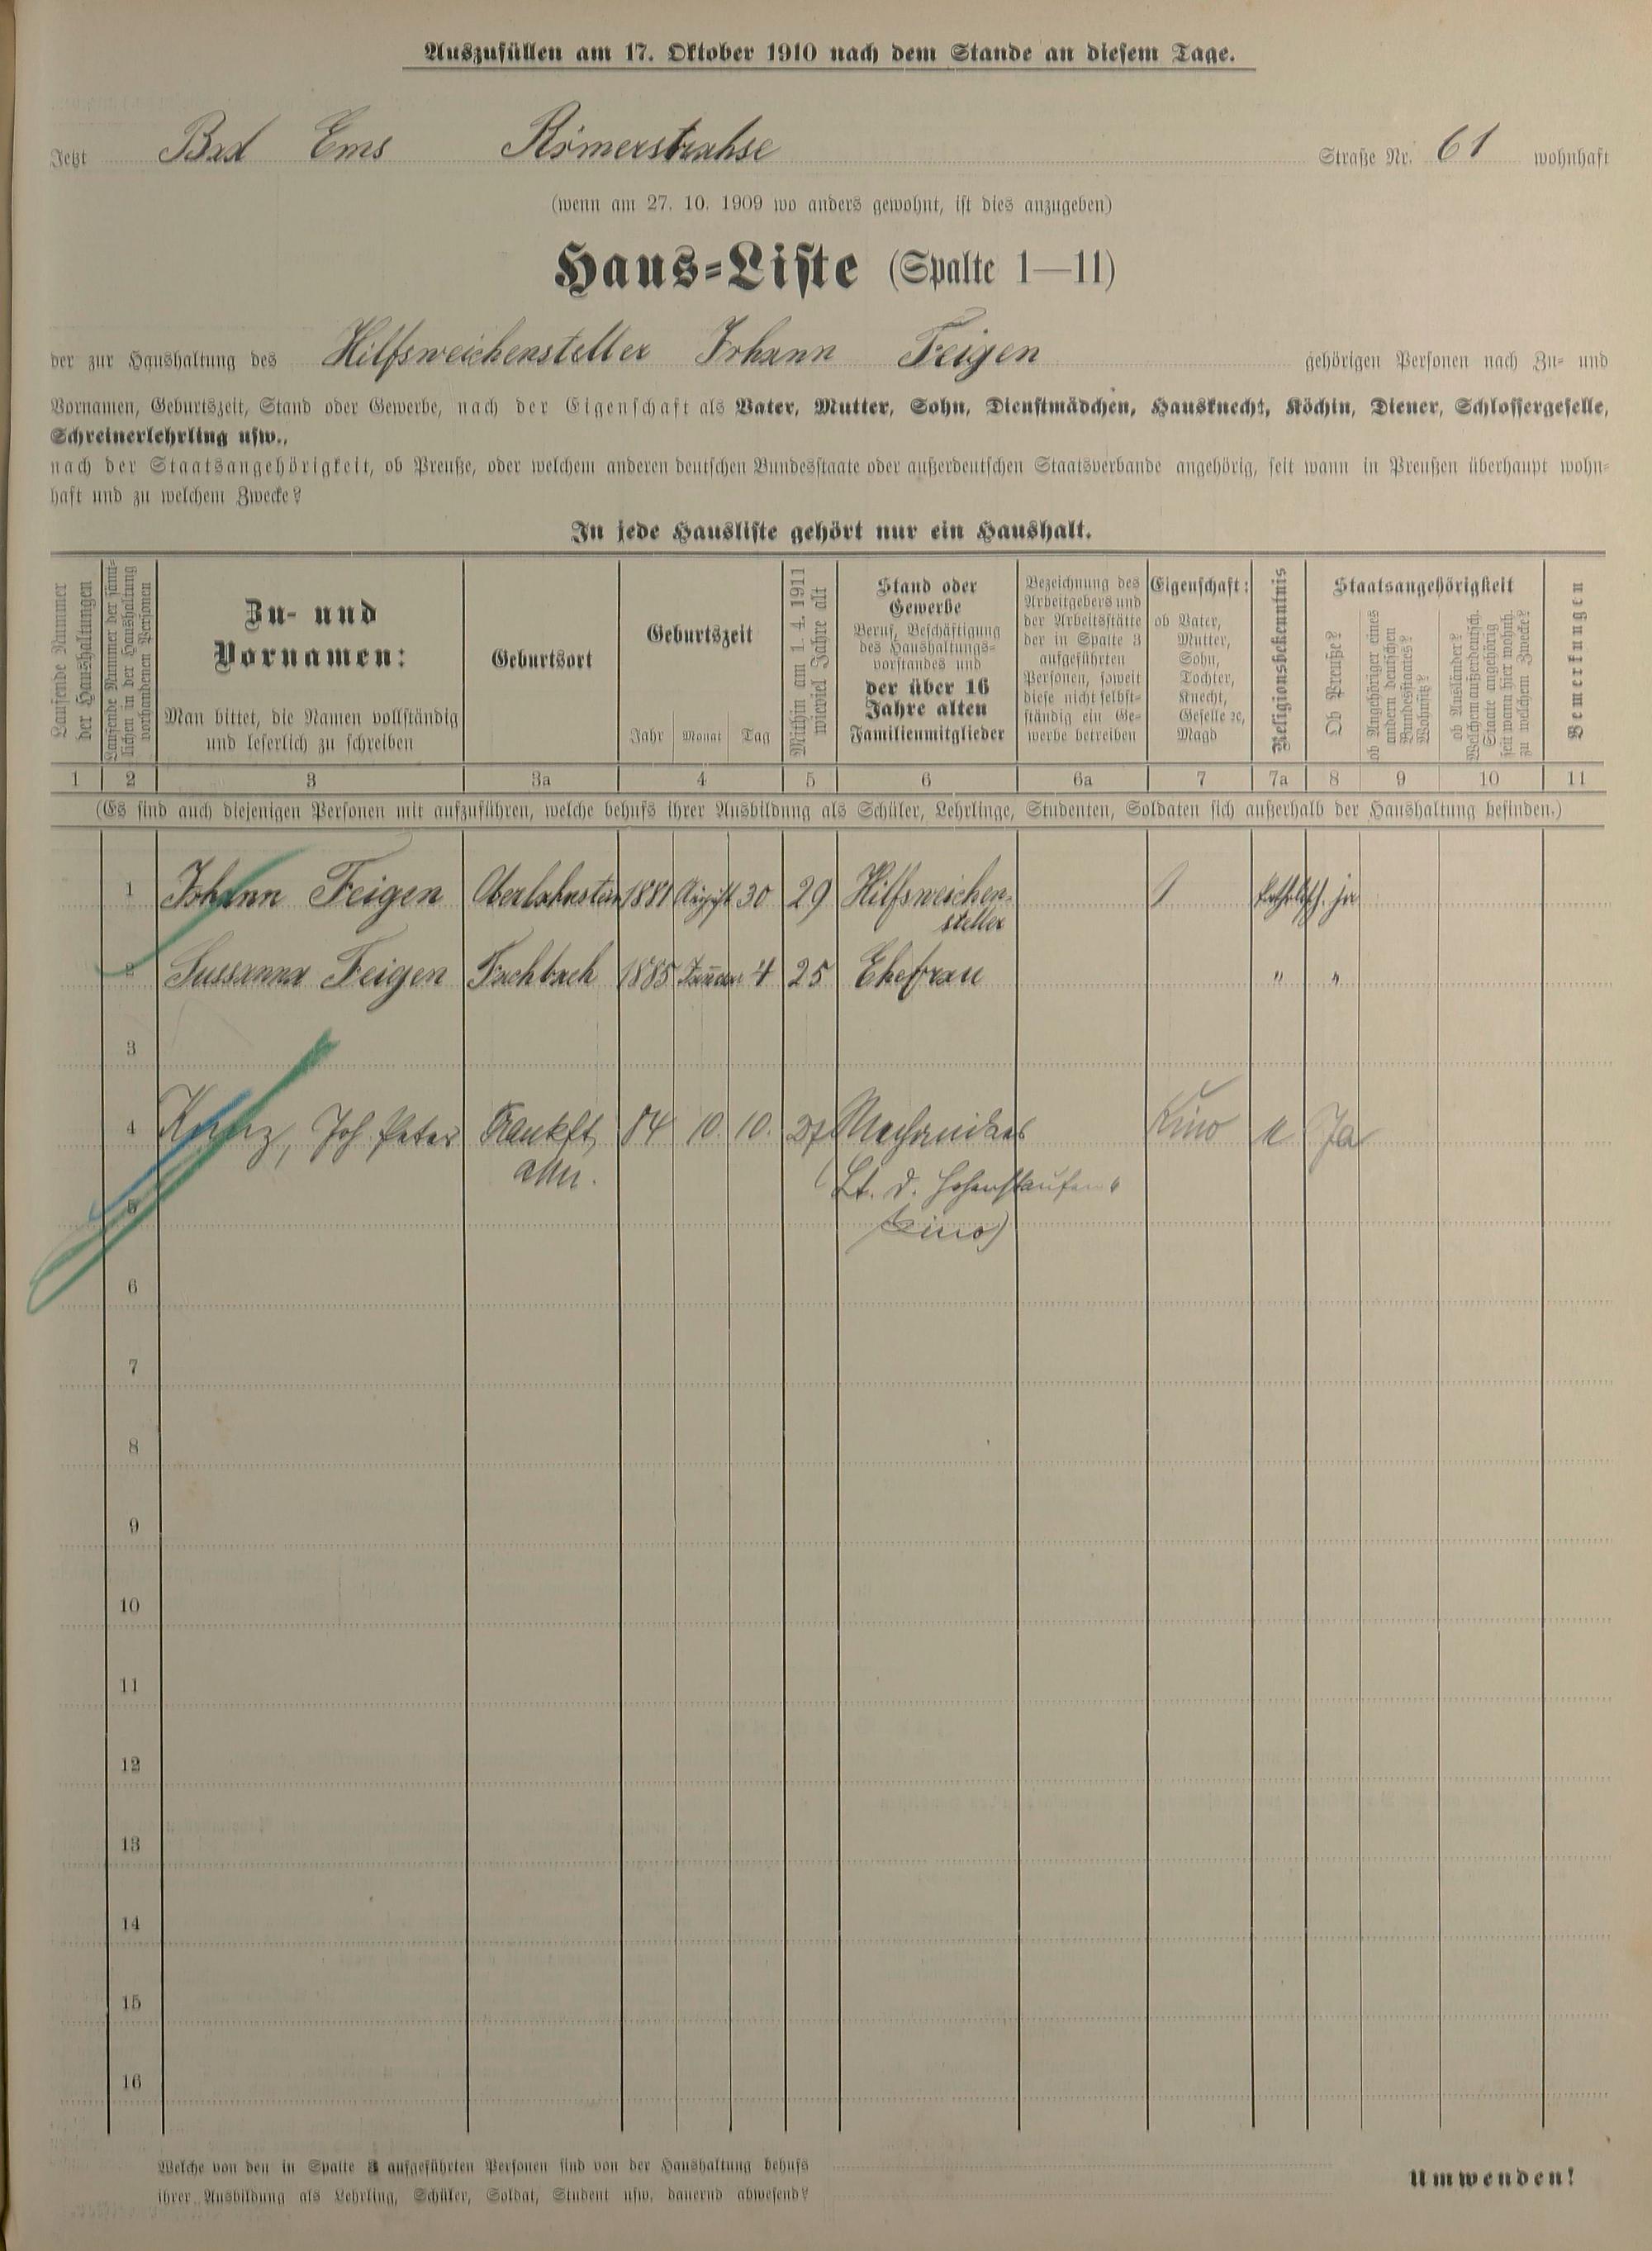 Auszufüllen am 17. Oktober 1910 nach dem Stande an diesem Tage.
Jetzt Bad Ems Römerstrahse Straße Nr. 61 wohnhaft
(wenn am 27. 10. 1909 wo anders gewohnt, ist dies anzugeben)
Haus-Liste (Spalte 1—11)
der zur Haushaltung des Hilfsweichensteller Johann Feigen gehörigen Personen nach Zu- und
Vornamen, Geburtszeit, Stand oder Gewerbe, nach der Eigenschaft als Vater, Mutter, Sohn, Dienstmädchen, Hausknecht, Köchin, Diener, Schlossergeselle,
Schreinerlehrling usw.,
nach der Staatsangehörigkeit, ob Preuße, oder welchem anderen deutschen Bundesstaate oder außerdeutschen Staatsverbande angehörig, seit wann in Preußen überhaupt wohn-
haft und zu welchem Zwecke?
In jede Hausliste gehört nur ein Haushalt.
Laufende Nummer
der Haushaltungen
Laufende Nummer der sämt-
lichen in der Haushaltung
vorhandenen Personen
Zu- und
Vornamen:
Man bittet, die Namen vollständig
und leserlich zu schreiben
Geburtsort
Geburtszeit
Jahr Monat Tag
Mithin am 1. 4. 1911
wieviel Jahre alt
Stand oder
Gewerbe
Beruf, Beschäftigung
des Haushaltungs-
vorstandes und
der über 16
Jahre alten
Familienmitglieder
Bezeichnung des
Arbeitgebers und
der Arbeitsstätte
der in Spalte 3
aufgeführten
Personen, soweit
diese nicht selbst-
ständig ein Ge-
werbe betreiben
Eigenschaft:
ob Vater,
Mutter,
Sohn,
Tochter,
Knecht,
Geselle ꝛc,
Magd
Religionsbekenntnis
Staatsangehörigkeit
Ob Preuße?
ob Angehöriger eines
andern deutschen
Bundesstaates?
Wohnsitz?
ob Ausländer?
Welchem außerdeutsch.
Staate angehörig
seit wann hier wohnh.
zu welchem Zwecke?
Bemerkungen
1 2 3 3a 4 5 6 6a 7 7a 8 9 10 11
(Es sind auch diejenigen Personen mit aufzuführen, welche behufs ihrer Ausbildung als Schüler, Lehrlinge, Studenten, Soldaten sich außerhalb der Haushaltung befinden.)
1 Johann Feigen Oberlahnstein 1881 August 30 29 Hilfsweichen- ja
steller
2 Sussanna Feigen Fachbach 1885 Januar 4 25 Ehefrau " "
3
4 Joh. Peter Frankft 84 10. 10. 27 Mechaniker Kino Ja
a/M.
5 (Bt. d. Hohenstaufen
Kino)
6
7
8
9
10
11
12
13
14
15
16
Welche von den in Spalte 3 aufgeführten Personen sind von der Haushaltung behufs
ihrer Ausbildung als Lehrling, Schüler, Soldat, Student usw. dauernd abwesend?
Umwenden!